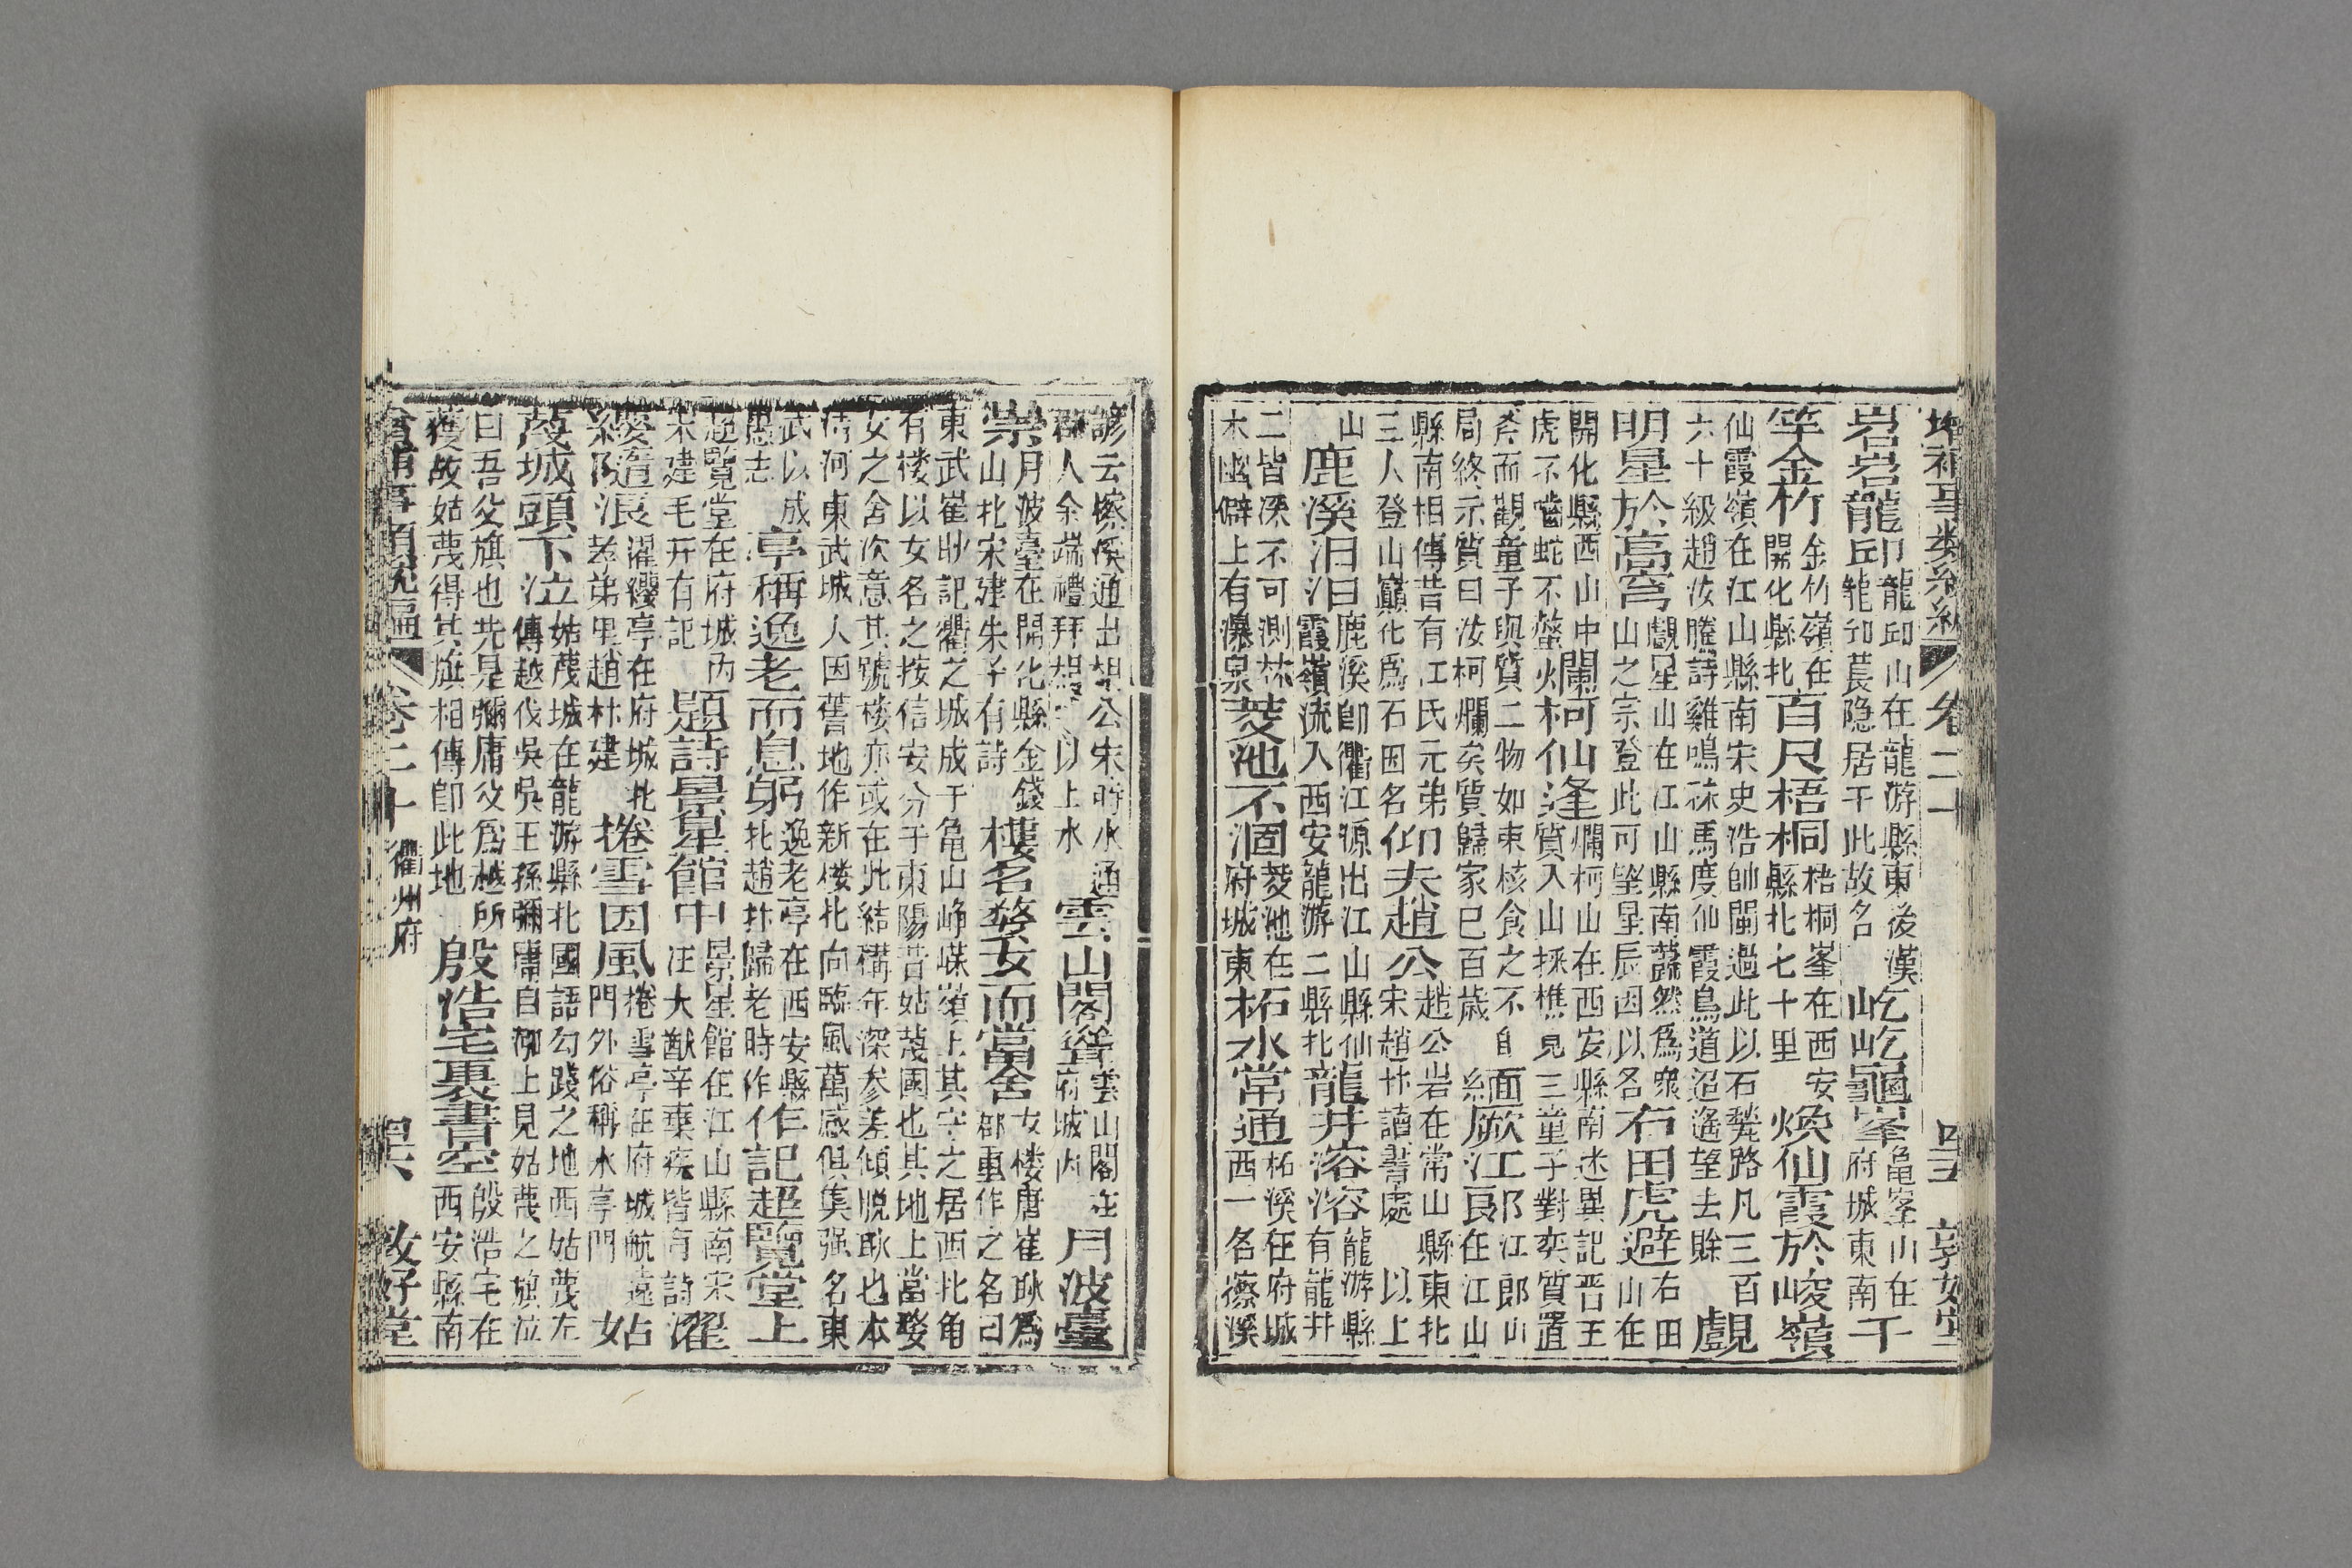 岩岩龍邱龍邱山在龍游縣東後漢龍邱萇隐居于此故名屹屹龜峯龜峯山在府城東南千
竿金竹金竹嶺在開化縣北百尺梧桐梧桐峯在西安縣北七十里煥仙霞於峻嶺
仙霞嶺在江山縣南宋史浩帥閩過此以石甃路凡三百六十級趙汝騰詩雞鳴秣馬度仙霞鳥道迢遥望去賖覷
明星於高穹覷星山在江山縣南蠶然爲衆山之宗登此可望星辰因以名石田虎避石田山在
開化縣西山中虎不嚙蛇不螫火爛柯仙逢爛柯山在西安縣南述異記晉王質入山採樵見三童子對奕質置
斧而觀童子與質二物如棗核食之不飢局終示質曰汝柯爛矣質歸家已百歲緬厥江郎江郎山在江山
縣南相傳昔有江氏元弟三人登山巔化爲石因名仰夫趙公趙公岩在常山縣東北宋趙抃讀書處以上
山鹿溪汨汨鹿溪卽衢江源出江山縣仙霞嶺流入西安龍游二縣北龍井溶溶龍游縣有龍井
二皆深不可測林木幽僻上有瀑泉菱池不涸菱池在府城東柘水常通柘溪在府城西一名擦溪
諺云擦溪通出相公宋時水通郡人余端禮拜相以上水雲山閣聳雲山閣在府城内月波臺
崇月波臺在開化縣金錢山北宋建朱子有詩樓名婺女而當舍女楼唐崔耿爲郡重作之名曰
東武崔耿記衢之城成于龜山崢嶸嶺上其守之居西北角有楼以女名之按信安分于東陽昔姑蔑國也其地上當婺
女之舍次意其號楼亦或在此結構年深参差傾脱耿也本清河東武城人因舊地作新楼北向臨風萬感俱集强名東
武以成愚志亭稱逸老而息躬逸老亭在西安縣北趙抃歸老時作作記超覽堂上
超覽堂在府城内宋建毛幵有記題詩景星館中景星館在江山縣南宋汪大猷辛棄疾皆有詩濯
纓隨浪濯纓亭在府城北孝弟里趙抃建捲雪因風捲雪亭在府城航遠門門外俗稱水亭門姑
蔑城頭下泣姑蔑城在龍游縣北國語勾踐之地西姑蔑左傳越伐吳吳王孫彌庸自泖上見姑蔑之旗泣
曰吾父旗也先是彌庸父爲越所獲故姑蔑得其旗相傳卽此地殷浩宅裏書空殷浩宅在西安縣南
卷二十 衢州府